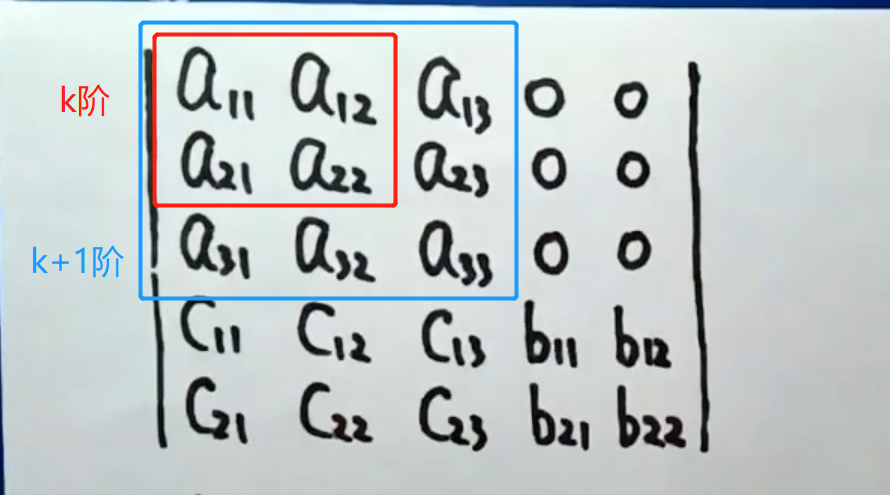 k阶
k+1阶
a11 a12 a13 0 0
a21 a22 a23 0 0
a31 a32 a33 0 0
C11 C12 C13 b11 b12
C21 C22 C23 b21 b22